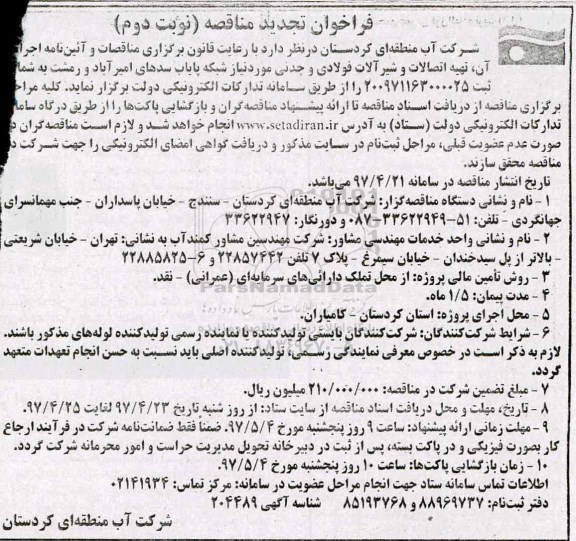 فراخوان تجدید مناقصه (نوبت دوم)
شرکت آب منطقه‌ای کردستان درنظر دارد با رعایت قانون برگزاری مناقصات و آئین‌نامه اجرا
آن، تهیه اتصالات و شیرآلات فولادی و چدنی موردنیاز شبکه پایاب سدهای امیرآباد و رمشت به شما
ثبت ۲۰۰۹۷۱۱۶۳۰۰۰۰۲۵ را از طریق سامانه تدارکات الکترونیکی دولت برگزار نماید. کلیه مراحل
برگزاری مناقصه از دریافت اسناد مناقصه تا ارائه پیشنهاد مناقصه‌گران و بازگشایی پاکت‌ها را از طریق درگاه سامانه
تدارکات الکترونیکی دولت (ستاد) به آدرس www.setadiran.ir انجام خواهد شد و لازم است مناقصه‌گران در
صورت عدم عضویت قبلی، مراحل ثبت‌نام در سایت مذکور و دریافت گواهی امضای الکترونیکی را جهت شرکت در
مناقصه محقق سازند.
تاریخ انتشار مناقصه در سامانه ۹۷/۴/۲۱ می‌باشد.
۱ - نام و نشانی دستگاه مناقصه‌گزار: شرکت آب منطقه‌ای کردستان - سنندج - خیابان پاسداران - جنب مهمانسرای
جهانگردی - تلفن: ۵۱-۳۳۶۲۲۹۴۹-۰۸۷ و دورنگار: ۳۳۶۲۲۹۴۷
۲ - نام و نشانی واحد خدمات مهندسی مشاور: شرکت مهندسین مشاور کمندآب به نشانی: تهران - خیابان شریعتی
- بالاتر از پل سیدخندان - خیابان سیمرغ - پلاک ۷ تلفن ۲۲۸۵۷۴۴۲ و ۶-۲۲۸۸۵۸۲۵
۳ - روش تأمین مالی پروژه: از محل تملک دارایی‌های سرمایه‌ای (عمرانی) - نقد.
۴ - مدت پیمان: ۱/۵ ماه.
۵ - محل اجرای پروژه: استان کردستان - کامیاران.
۶ - شرایط شرکت‌کنندگان: شرکت‌کنندگان بایستی تولیدکننده یا نماینده رسمی تولیدکننده لوله‌های مذکور باشند.
لازم به ذکر است در خصوص معرفی نمایندگی رسمی، تولیدکننده اصلی باید نسبت به حسن انجام تعهدات متعهد
گردد.
۷ - مبلغ تضمین شرکت در مناقصه: ۲۱۰/۰۰۰/۰۰۰ میلیون ریال.
۸ - تاریخ، مهلت و محل دریافت اسناد مناقصه از سایت ستاد: از روز شنبه تاریخ ۹۷/۴/۲۳ لغایت ۹۷/۴/۲۵.
۹ - مهلت زمانی ارائه پیشنهاد: ساعت ۹ روز پنجشنبه مورخ ۹۷/۵/۴. ضمنا فقط ضمانت‌نامه شرکت در فرآیند ارجاع
کار بصورت فیزیکی و در پاکت بسته، پس از ثبت در دبیرخانه تحویل مدیریت حراست و امور محرمانه شرکت گردد.
۱۰ - زمان بازگشایی پاکت‌ها: ساعت ۱۰ روز پنجشنبه مورخ ۹۷/۵/۴.
اطلاعات تماس سامانه ستاد جهت انجام مراحل عضویت در سامانه: مرکز تماس: ۰۲۱۴۱۹۳۴
دفتر ثبت‌نام: ۸۸۹۶۹۷۳۷ و ۸۵۱۹۳۷۶۸ شناسه آگهی ۲۰۴۴۸۹
شرکت آب منطقه‌ای کردستان
ParsNamadData